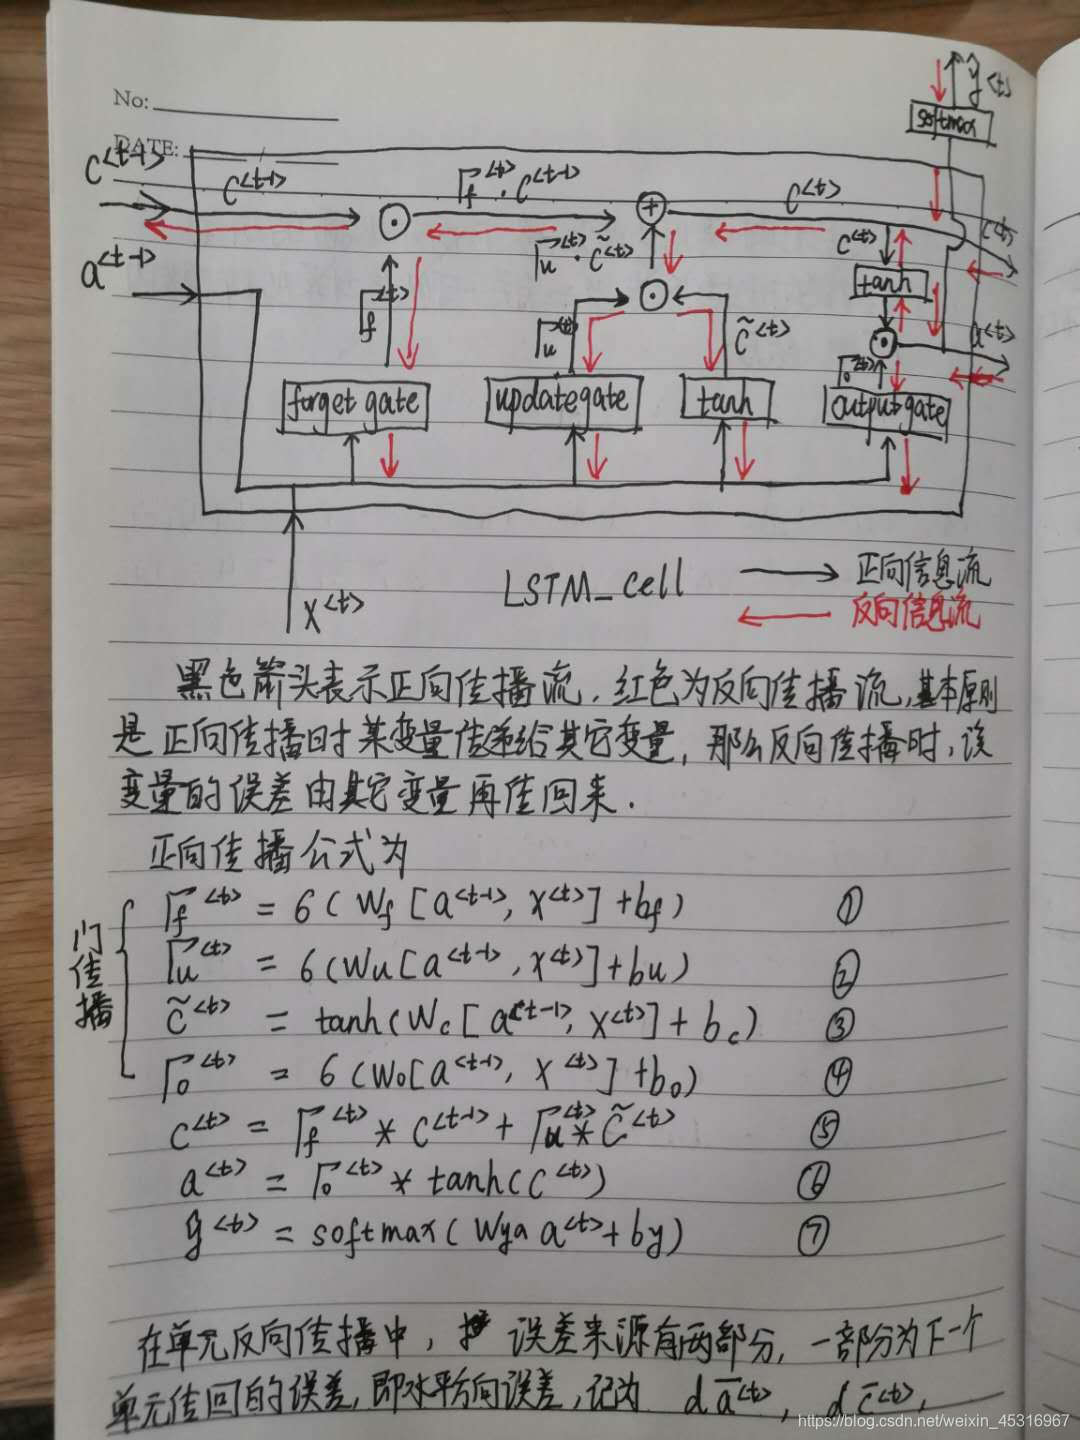 No:
DATE:
ŷ<t>
softmax
C<t-1>
C<t-1>
Γf<t>·C<t-1>
C<t>
C<t>
C<t>
a<t-1>
Γu<t>·C̃<t>
tanh
Γf<t>
Γu<t>
C̃<t>
a<t>
Γo<t>
forget gate
update gate
tanh
output gate
X<t>
LSTM_cell
正向信息流
反向信息流
黑色箭头表示正向传播流,红色为反向传播流,基本原则
是正向传播时某变量传递给其它变量,那么反向传播时,该
变量的误差由其它变量再传回来.
正向传播公式为
门传播
Γf<t> = 6(Wf[a<t-1>, X<t>]+bf) ①
Γu<t> = 6(Wu[a<t-1>, X<t>]+bu) ②
C̃<t> = tanh(Wc[a<t-1>, X<t>]+bc) ③
Γo<t> = 6(Wo[a<t-1>, X<t>]+bo) ④
C<t> = Γf<t> * C<t-1> + Γu<t> * C̃<t> ⑤
a<t> = Γo<t> * tanh(C<t>) ⑥
ŷ<t> = softmax(Wya a<t>+by) ⑦
在单元反向传播中, 误差来源有两部分,一部分为下一个
单元传回的误差,即水平方向误差,记为 dā<t>, dc̄<t>,
https://blog.csdn.net/weixin_45316967